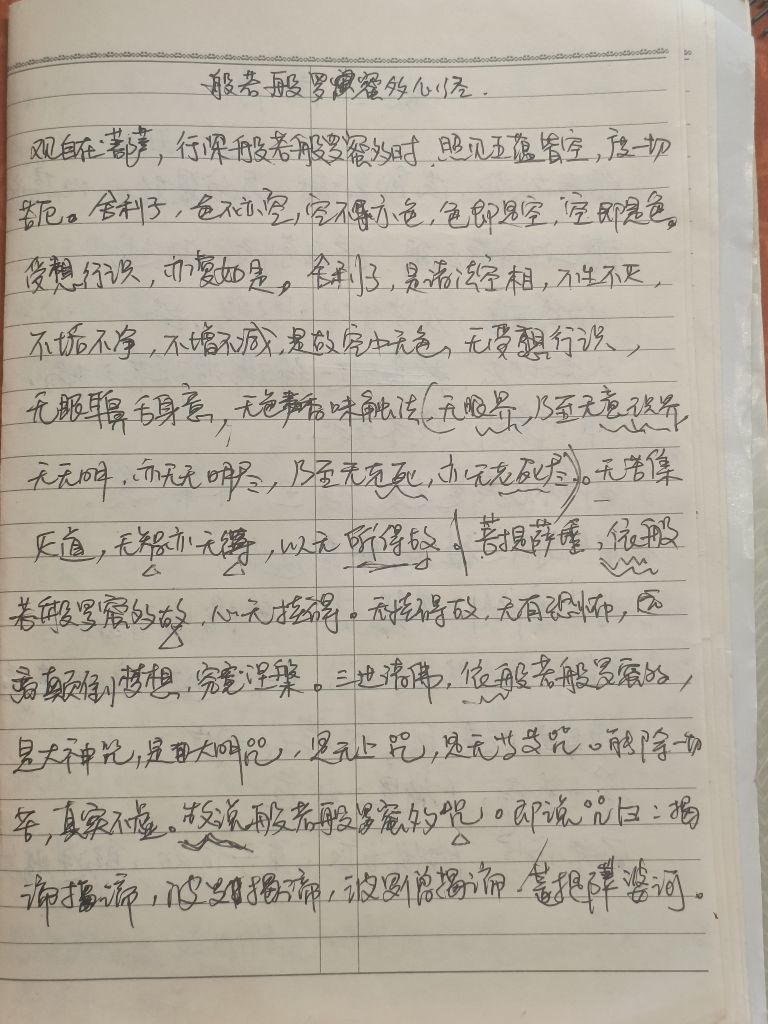 般若般罗蜜多心经.
观自在菩萨，行深般若般罗蜜多时 照见五蕴皆空，度一切
苦厄。舍利子，色不亦空，空不亦色，色即是空，空即是色。
受想行识，亦复如是。舍利子，是诸法空相，不生不灭，
不垢不净，不增不减，是故空中无色，无受想行识，
无眼耳鼻舌身意，无色香味触法(无眼界，乃至无意识界，
无无明，亦无无明尽，乃至无老死，亦无老死尽)。无苦集
灭道，无智亦无得，以无所得故。菩提萨埵，依般
若般罗蜜多故，心无挂碍。无挂碍故，无有恐怖，远
离颠倒梦想，究竟涅槃。三世诸佛，依般若般罗蜜多，
是大神咒，是大明咒，是无上咒，是无等等咒。能除一切
苦，真实不虚。故说般若般罗蜜多咒。即说咒曰：揭
谛揭谛，波罗揭谛，波罗僧揭谛 菩提萨婆诃。